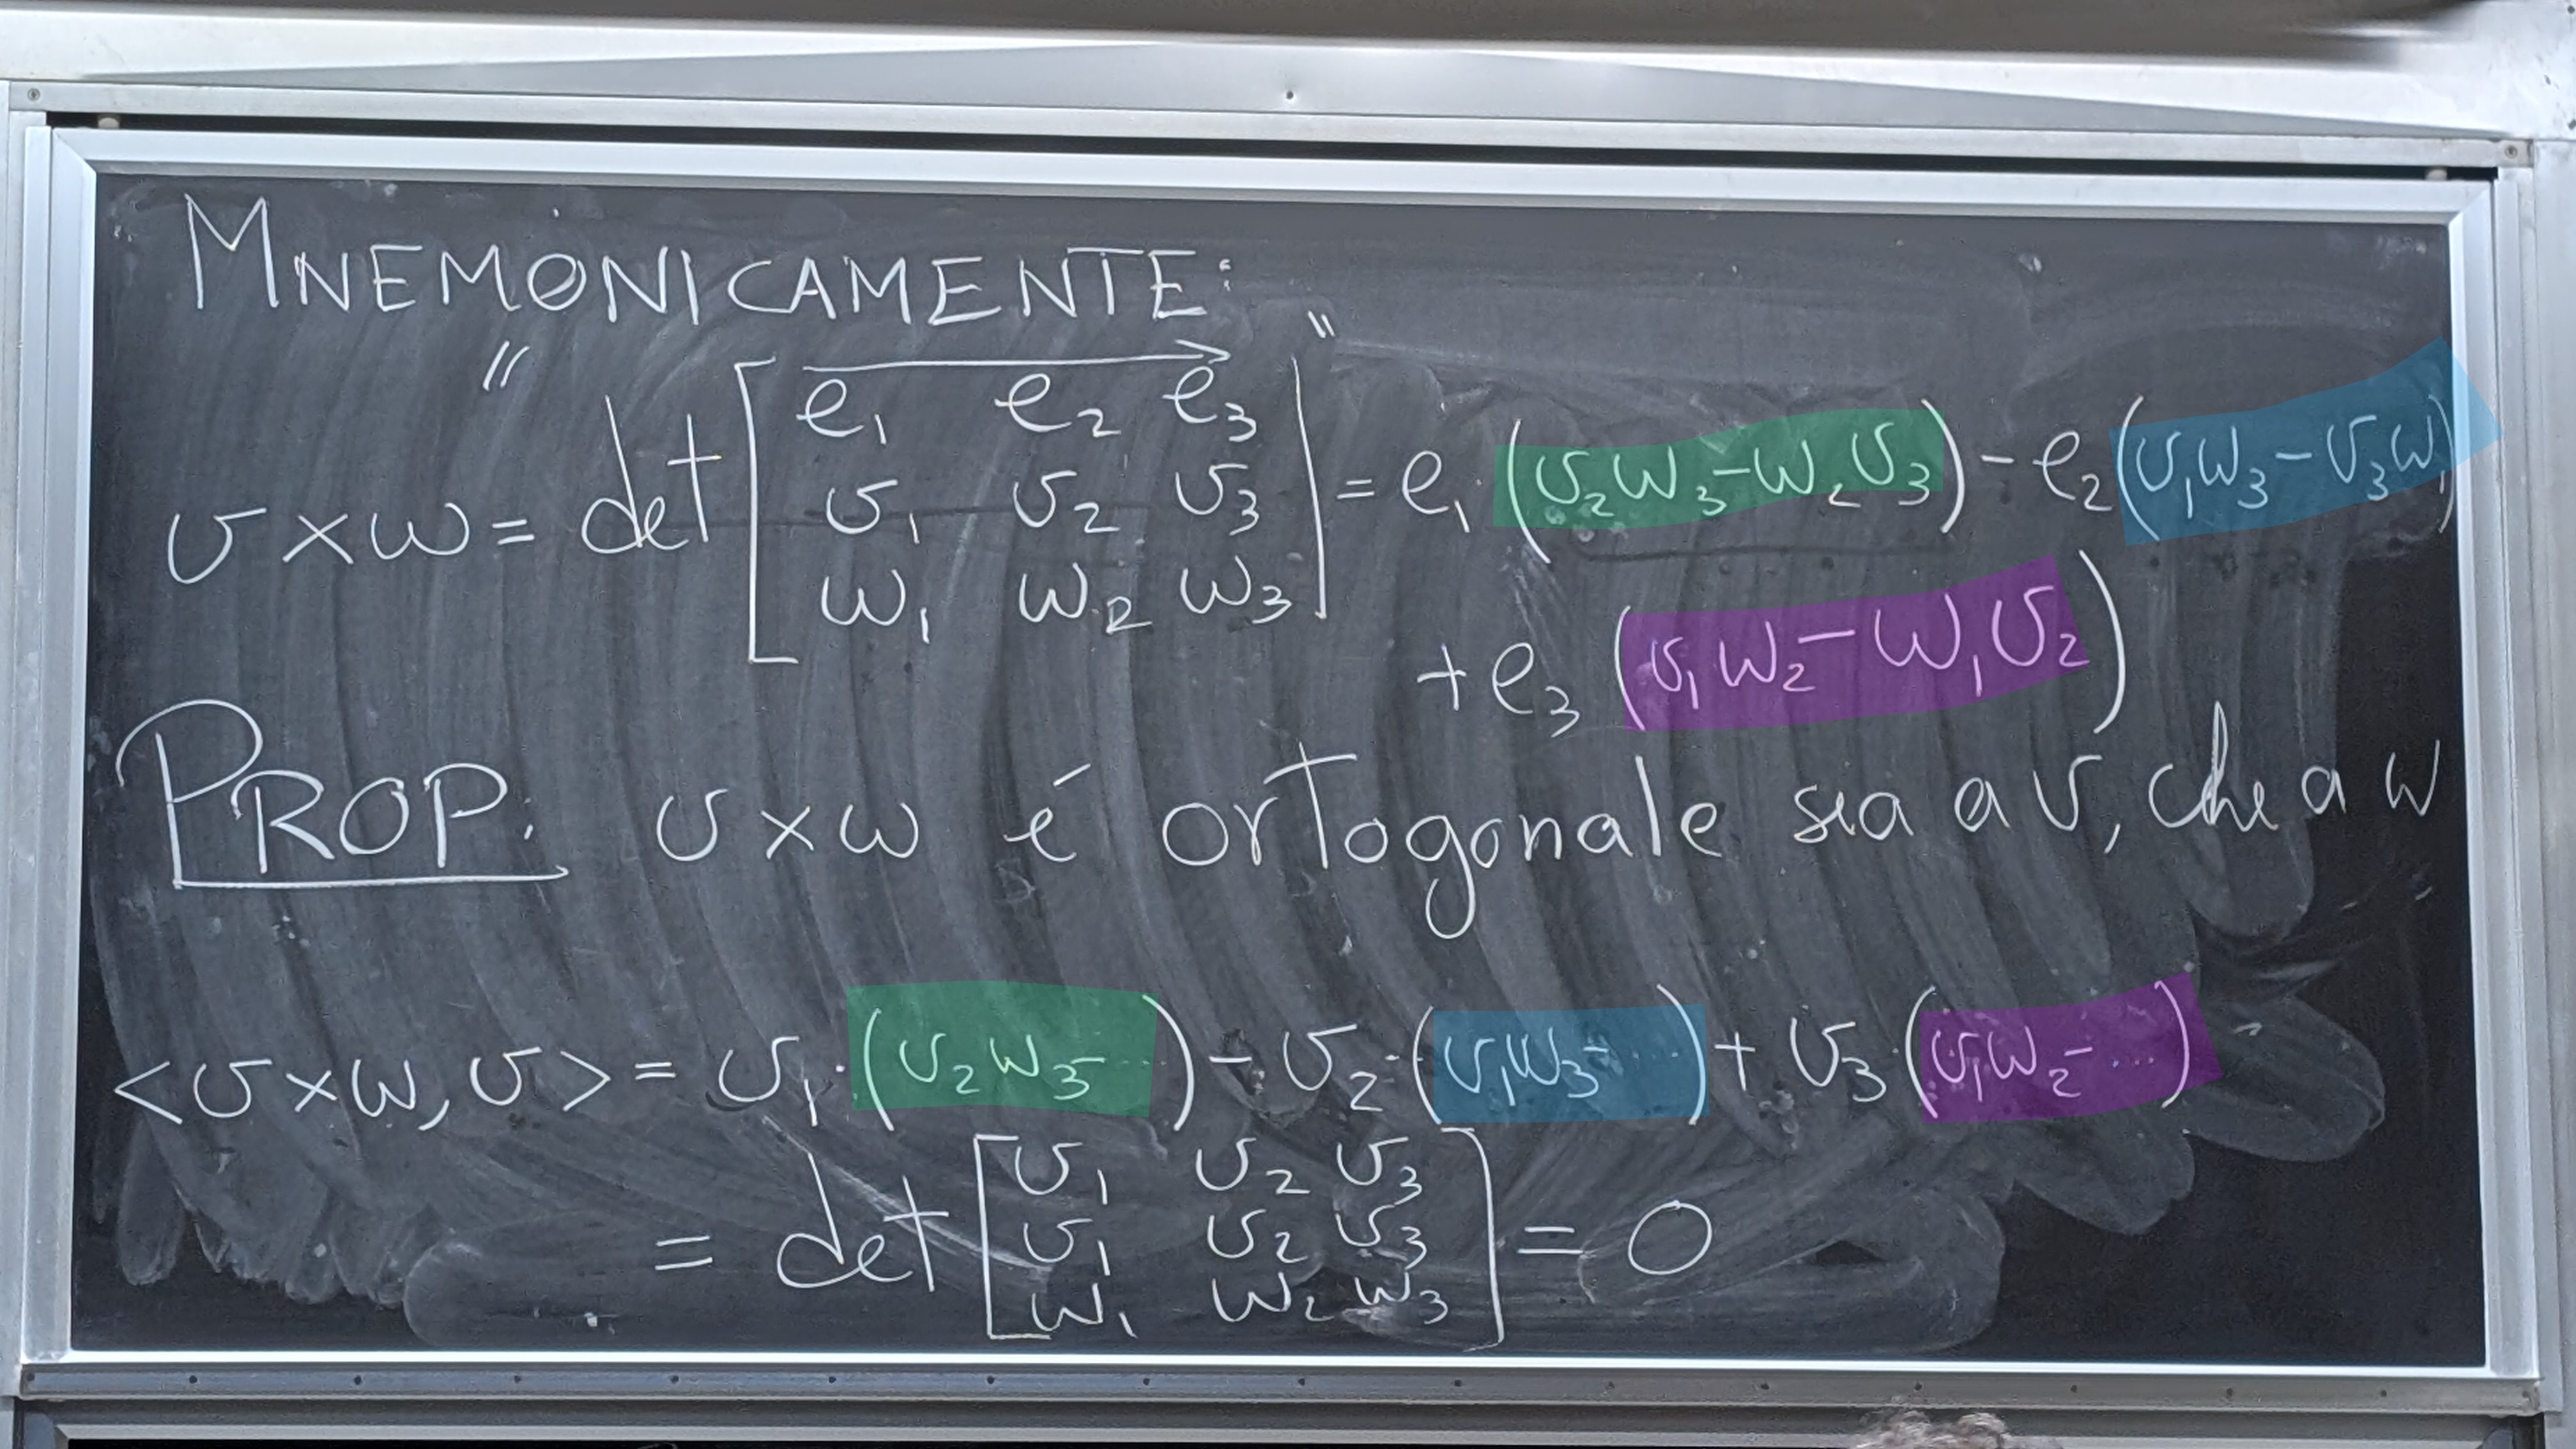 MNEMONICAMENTE:
v × w = " det [ e₁ e₂ e₃ ] " = e₁ (v₂w₃ - w₂v₃) - e₂ (v₁w₃ - v₃w₁)
v₁ v₂ v₃
w₁ w₂ w₃
+ e₃ (v₁w₂ - w₁v₂)
PROP: v × w é ortogonale sia a v, che a w
<v × w, v> = v₁ · (v₂w₃ - ...) - v₂ · (v₁w₃ - ...) + v₃ · (v₁w₂ - ...)
= det [ v₁ v₂ v₃ ] = 0
v₁ v₂ v₃
w₁ w₂ w₃